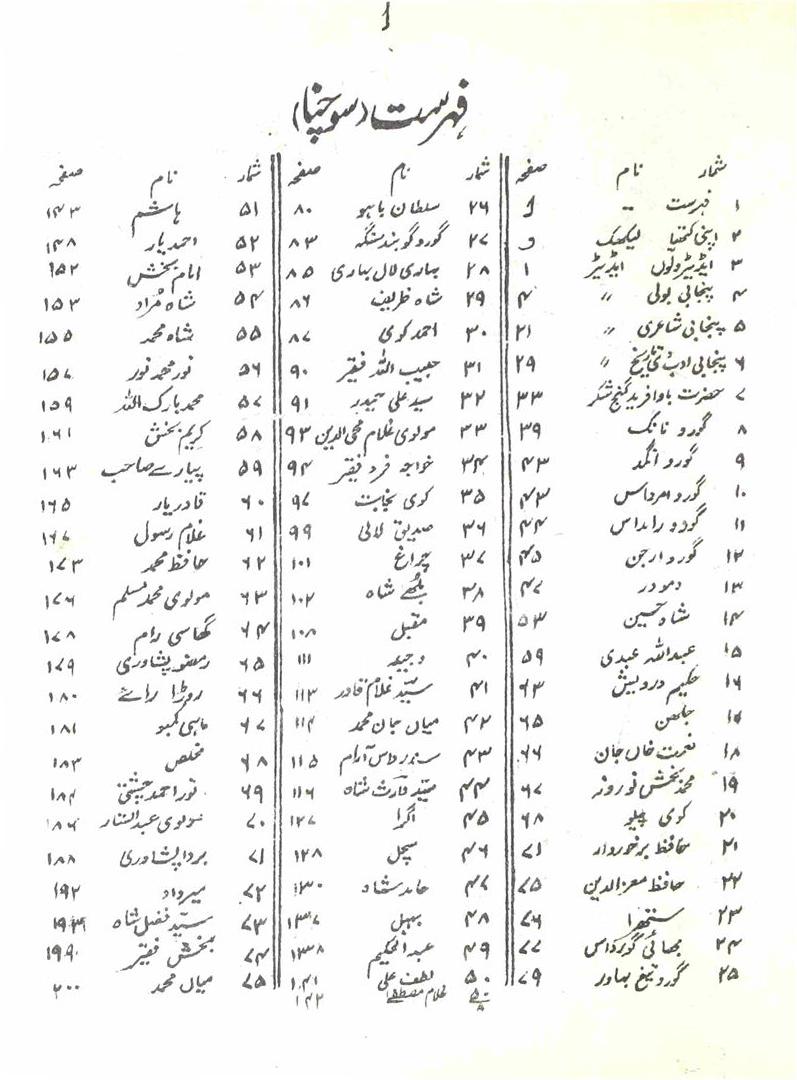 1
فہرست (سوچنا)
شمار نام صفحہ
۱ فہرست ۔۔ 1
۲ اپنی کتھیا لیکھیک و
۳ ایڈیٹر ولوں ایڈیٹر ۱
۴ پنجابی بولی 〃 ۴
۵ پنجابی شاعری 〃 ۲۱
۶ پنجابی ادب دی تاریخ 〃 ۲۹
۷ حضرت باوا فرید گنج شکر ۳۳
۸ گورو نانک ۳۹
۹ گورو انگد ۴۳
۱۰ گورو امرداس ۴۳
۱۱ گورو رامداس ۴۴
۱۲ گورو ارجن ۴۵
۱۳ دمودر ۴۷
۱۴ شاہ حسین ۵۳
۱۵ عبداللہ عبدی ۵۹
۱۶ حکیم درویش ۶۳
۱۷ جلھن ۶۵
۱۸ نعمت خاں جان ۶۶
۱۹ محمد بخش نوروز ۶۷
۲۰ کوی پیلو ۶۸
۲۱ حافظ برخوردار ۷۱
۲۲ حافظ معزالدین ۷۵
۲۳ ستھرا ۷۶
۲۴ بھائی گورداس ۷۷
۲۵ گورو تیغ بہادر ۷۹
شمار نام صفحہ
۲۶ سلطان باہو ۸۰
۲۷ گورو گوبند سنگھ ۸۳
۲۸ بہاری لال بہاری ۸۵
۲۹ شاہ ظریف ۸۶
۳۰ احمد کوی ۸۷
۳۱ حبیب اللہ فقیر ۹۰
۳۲ سید علی حیدر ۹۱
۳۳ مولوی غلام محی الدین ۹۳
۳۴ خواجہ فرد فقیر ۹۴
۳۵ کوی نجابت ۹۷
۳۶ صدیق لالی ۹۹
۳۷ چراغ ۱۰۱
۳۸ بلھے شاہ ۱۰۲
۳۹ مقبل ۱۰۸
۴۰ وجیہہ ۱۱۱
۴۱ سیّد غلام قادر ۱۱۳
۴۲ میاں جان محمد ۱۱۴
۴۳ سندر داس آرام ۱۱۵
۴۴ سیّد وارث شاہ ۱۱۶
۴۵ اگرا ۱۲۷
۴۶ سچل ۱۲۸
۴۷ حامد شاہ ۱۳۰
۴۸ بہبل ۱۳۷
۴۹ عبدالحکیم ۱۳۳۸
۵۰ لطف علی ۱۴۱
۵۰/A غلام مصطفےٰ ۱۴۲
شمار نام صفحہ
۵۱ ہاشم ۱۴۳
۵۲ احمد یار ۱۴۸
۵۳ امام بخش ۱۵۲
۵۴ شاہ مُراد ۱۵۳
۵۵ شاہ محمد ۱۵۵
۵۶ نور محمد نور ۱۵۷
۵۷ محمد بارک اللہ ۱۵۹
۵۸ کریم بخش ۱۶۱
۵۹ پیارے صاحب ۱۶۳
۶۰ قادر یار ۱۶۵
۶۱ غلام رسول ۱۶۷
۶۲ حافظ محمد ۱۷۳
۶۳ مولوی محمد مسلم ۱۷۶
۶۴ گھاسی رام ۱۷۸
۶۵ رمضو پشاوری ۱۷۹
۶۶ روڑا رائے ۱۸۰
۶۷ ماہی کمبو ۱۸۱
۶۸ مخلص ۱۸۳
۶۹ نور احمد چشتی ۱۸۴
۷۰ مولوی عبدالستار ۱۸۶
۷۱ بردا پشاوری ۱۸۸
۷۲ میرداد ۱۹۲
۷۳ سیّد فضل شاہ ۱۹۳
۷۴ بخش فقیر ۱۹۹
۷۵ میاں محمد ۲۰۰